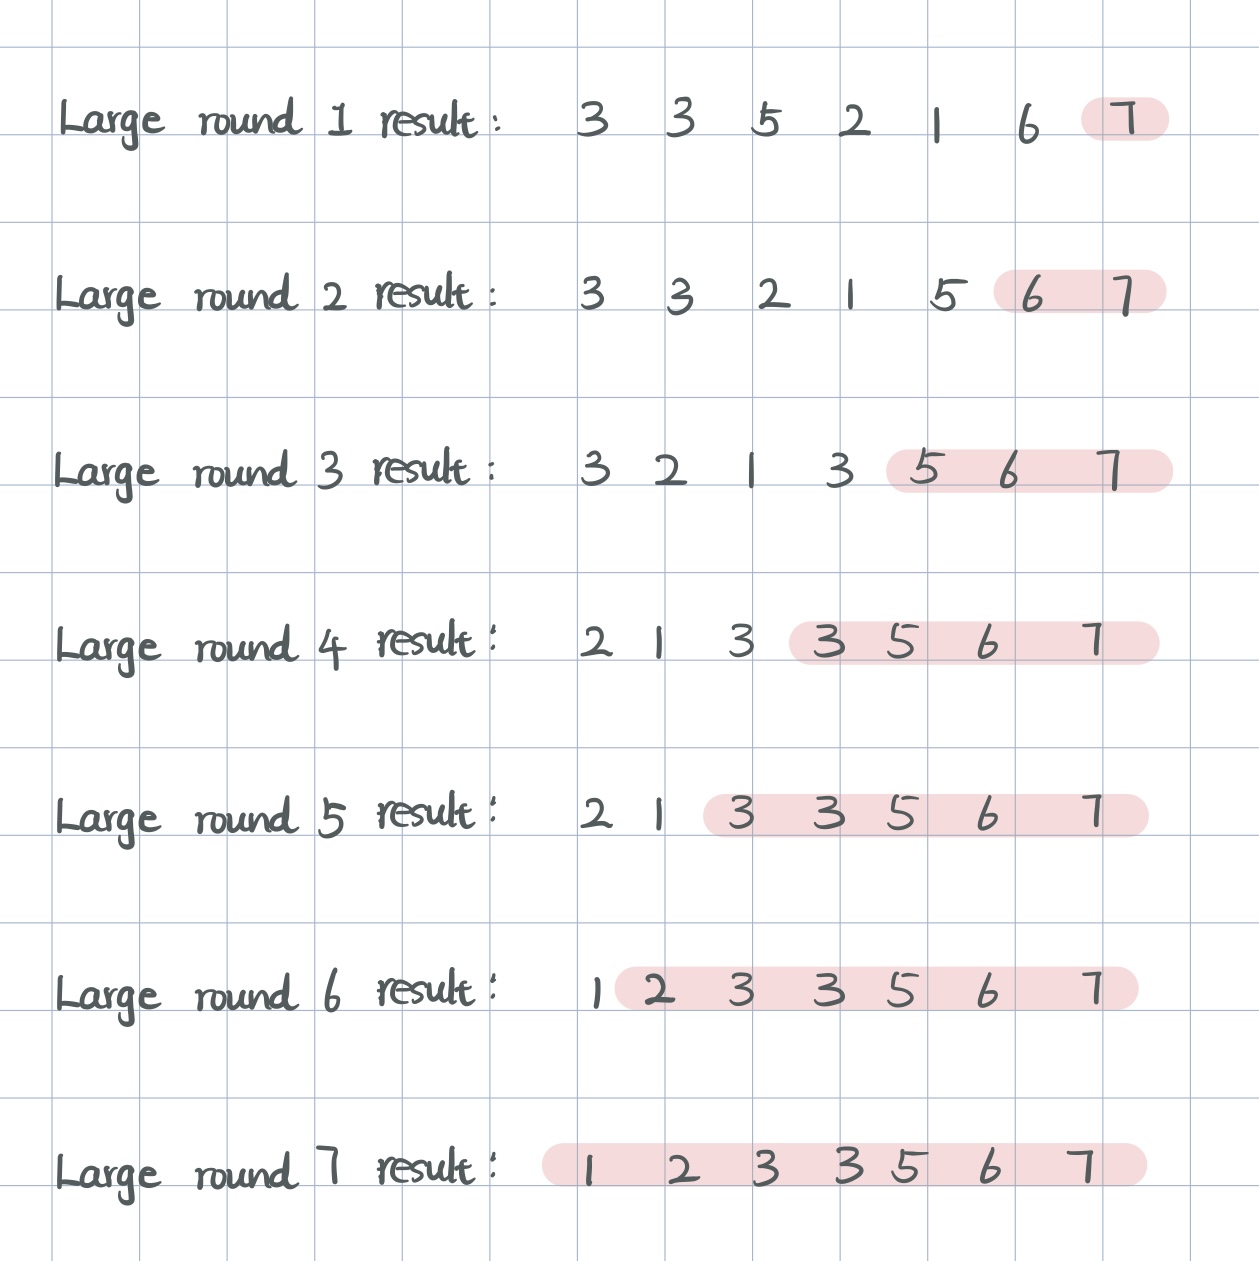 Large round 1 result: 3 3 5 2 1 6 7
Large round 2 result: 3 3 2 1 5 6 7
Large round 3 result: 3 2 1 3 5 6 7
Large round 4 result: 2 1 3 3 5 6 7
Large round 5 result: 2 1 3 3 5 6 7
Large round 6 result: 1 2 3 3 5 6 7
Large round 7 result: 1 2 3 3 5 6 7